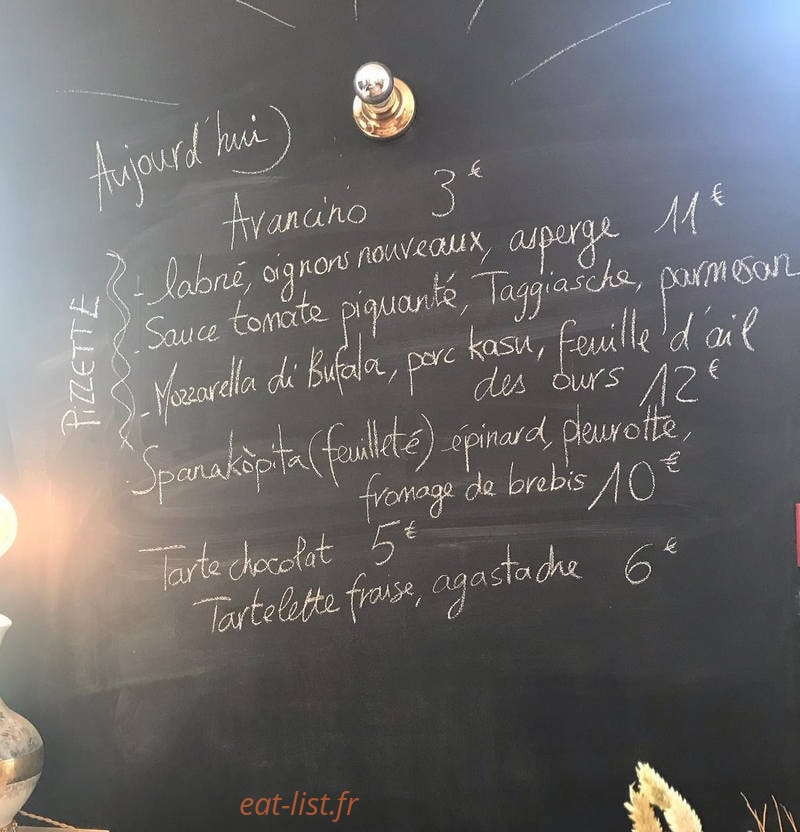 Aujourd'hui)
Arancino 3€
PIZZETTE
- labné, oignons nouveaux, asperge 11€
- Sauce tomate piquanté, Taggiasche, parmesan
- Mozzarella di Bufala, porc kasu, feuille d'ail
des ours 12€
Spanakòpita (feuilleté) épinard, pleurotte,
fromage de brebis 10€
Tarte chocolat 5€
Tartelette fraise, agastache 6€
eat-list.fr